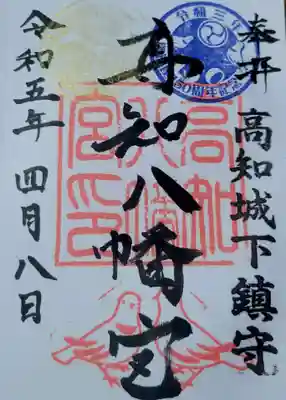 奉拝 高知城下鎮守
高知八幡宮
令和五年 四月八日
高知八幡宮印